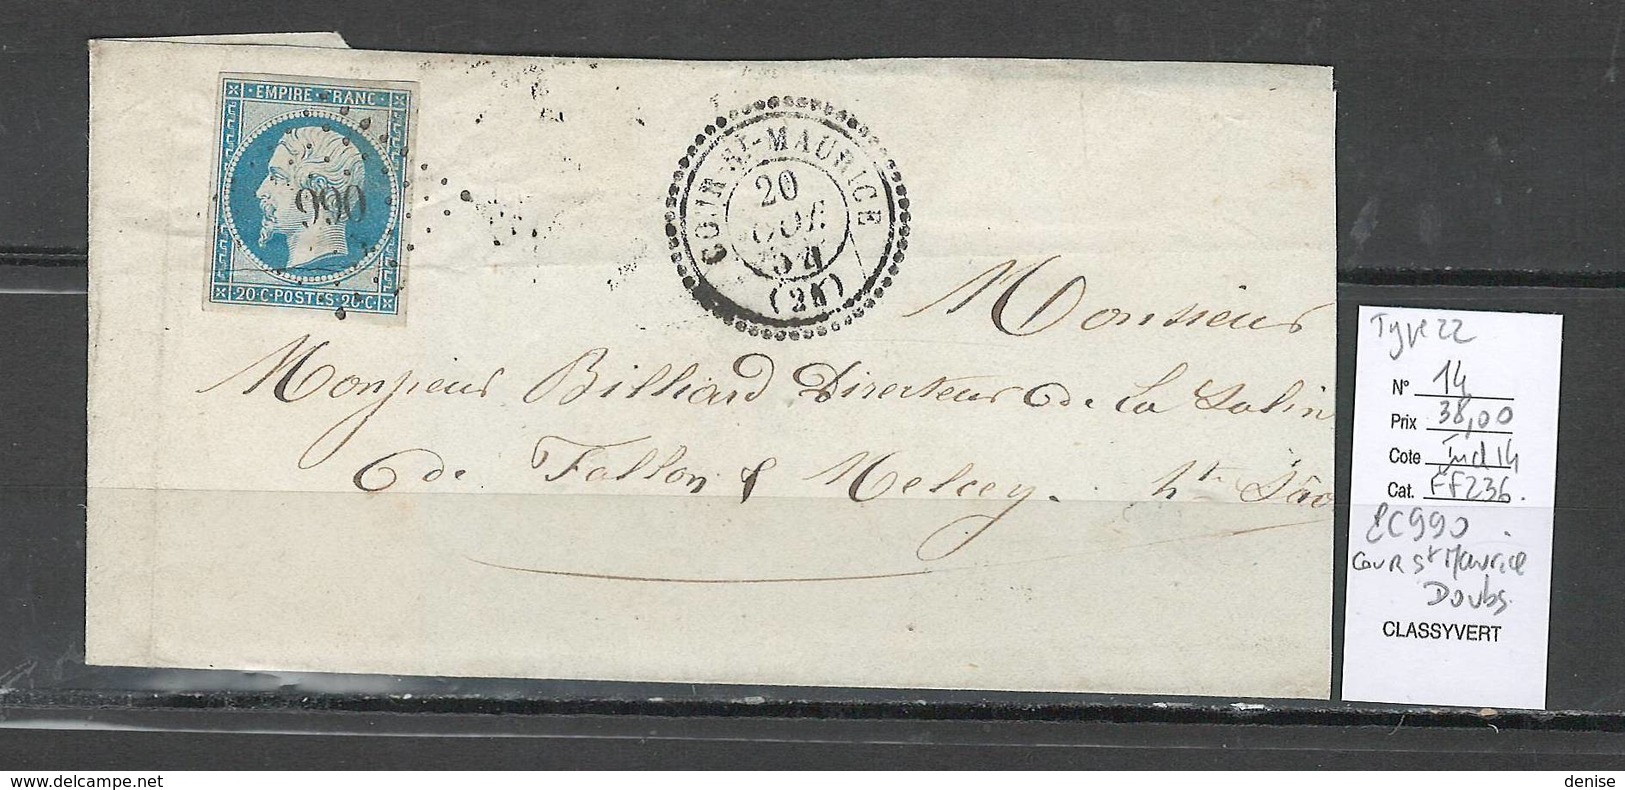 EMPIRE FRANC
990
20·C·POSTES·20·C
COUR-ST-MAURICE
20
54
(24)
Monsieur
Monsieur Billiard Directeur de la Salin
de Fallon & Melcey. hte Sao
Type 22
N° 14
Prix 38,00
Cote Ind 14
Cat. FF236.
PC990
Cour St Maurice
Doubs.
CLASSYVERT
denise